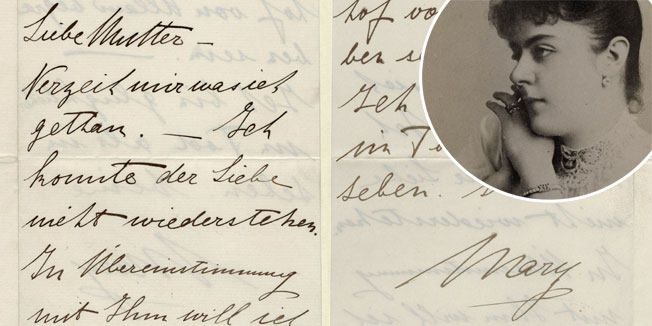 Liebe Mutter –
Verzeit mir was ich
gethan. — Ich
konnte der Liebe
nicht wiederstehen.
In Übereinstimmung
mit Ihm will ich
hof vo
ben se
Ich
im To
seben.
Mary